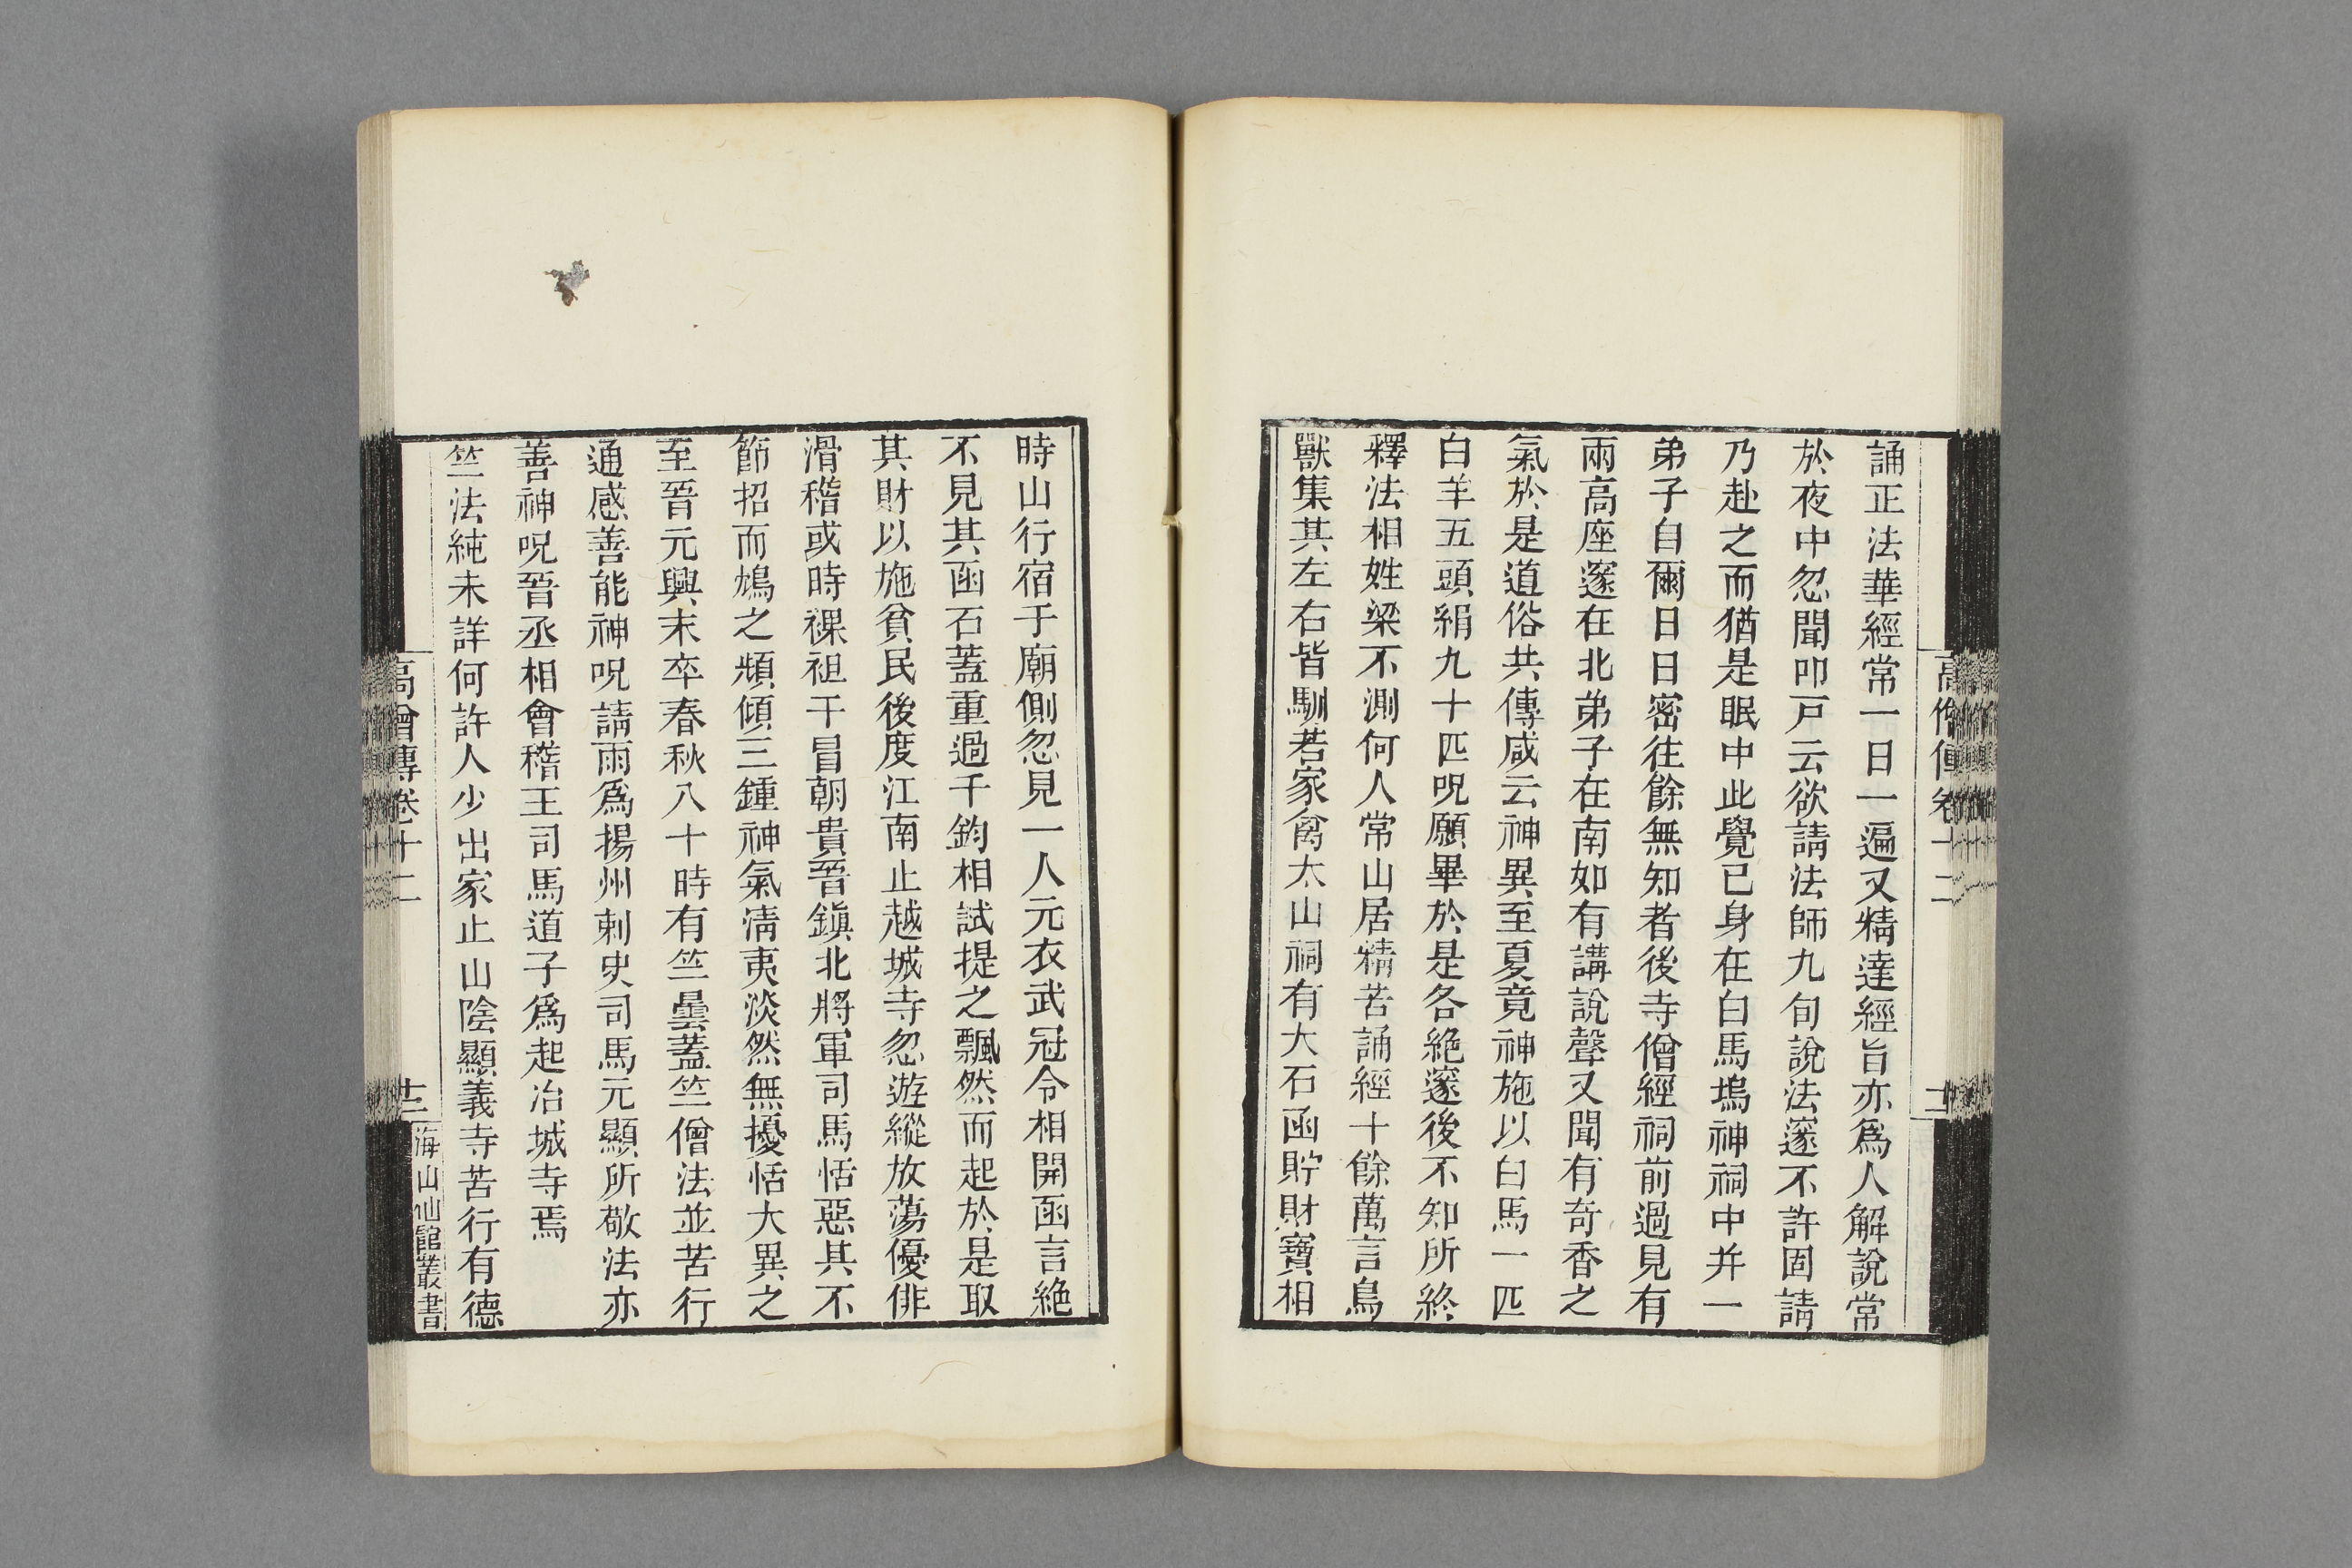 高僧傳卷十二
誦正法華經常一日一遍又精達經旨亦爲人解說常
於夜中忽聞叩戸云欲請法師九旬說法邃不許固請
乃赴之而猶是眠中此覺已身在白馬塢神祠中并一
弟子自爾日日密往餘無知者後寺僧經祠前過見有
兩高座邃在北弟子在南如有講說聲又聞有奇香之
氣於是道俗共傳咸云神異至夏竟神施以白馬一匹
白羊五頭絹九十匹呪願畢於是各絶邃後不知所終
釋法相姓梁不測何人常山居精苦誦經十餘萬言鳥
獸集其左右皆馴若家禽太山祠有大石函貯財寶相
時山行宿于廟側忽見一人元衣武冠令相開函言絶
不見其函石蓋重過千鈞相試提之飄然而起於是取
其財以施貧民後度江南止越城寺忽遊縱放蕩優俳
滑稽或時裸袒干冒朝貴晉鎭北將軍司馬恬惡其不
節招而鴆之頻傾三鍾神氣淸夷淡然無擾恬大異之
至晉元興末卒春秋八十時有竺曇蓋竺僧法並苦行
通感善能神呪請雨爲揚州刺史司馬元顯所敬法亦
善神呪晉丞相會稽王司馬道子爲起冶城寺焉
竺法純未詳何許人少出家止山陰顯義寺苦行有德
高僧傳卷十二
海山仙館叢書